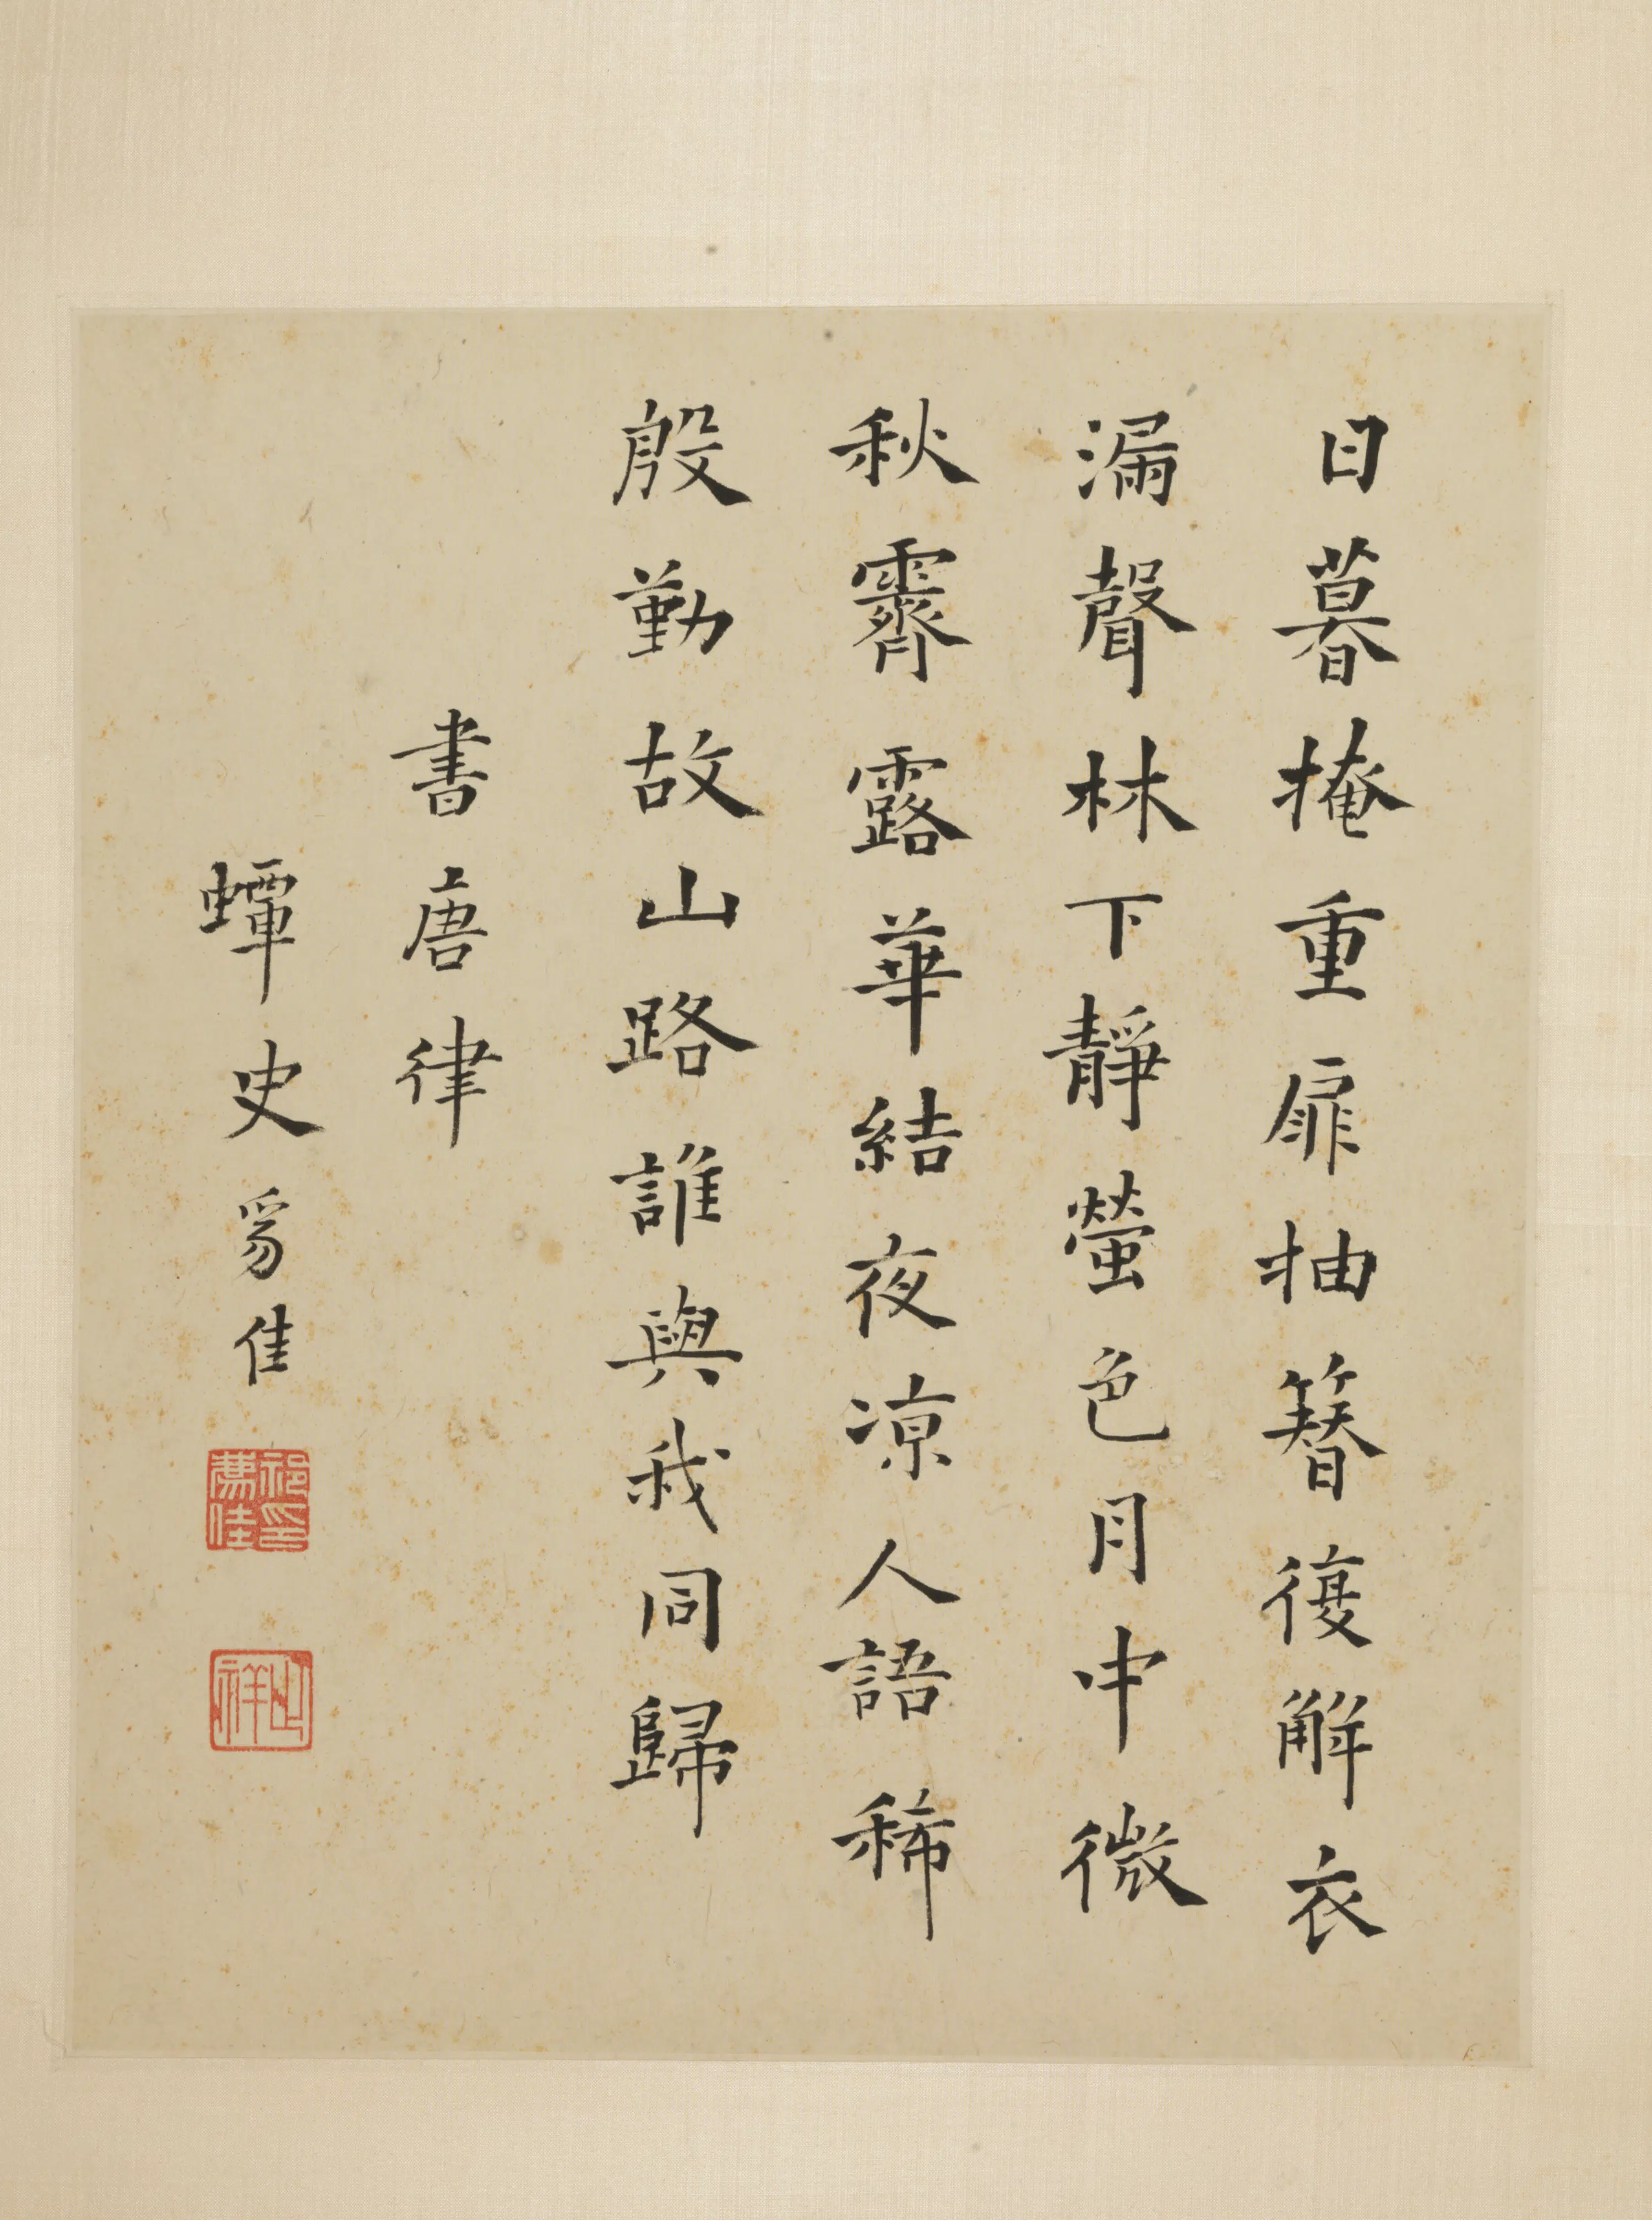 日暮掩重扉抽簪復解衣
漏聲林下靜螢色月中微
秋霽露華結夜凉人語稀
殷勤故山路誰與我同歸
書唐律
蟫史豸佳
祁豸佳印
止祥